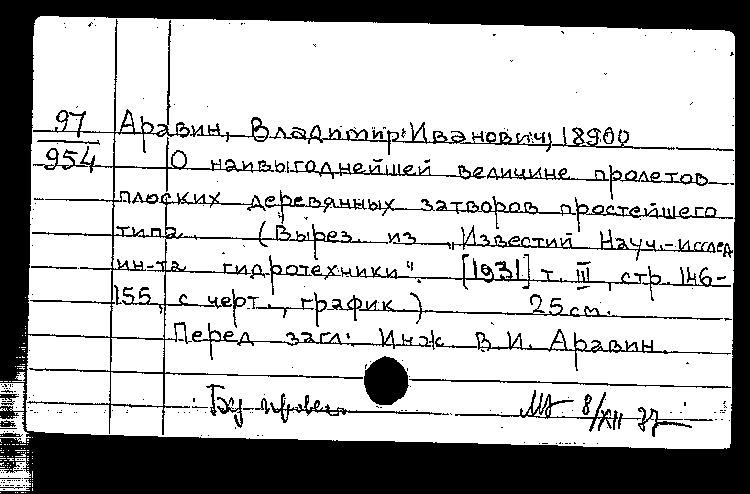 97 Аравин, Владимир Иванович, 18900
954 О наивыгоднейшей величине пролетов
плоских деревянных затворов простейшего
типа. (Вырез. из „Известий Науч.-исслед
ин-та гидротехники". [1931] т. III, стр. 146-
155, с черт., график.) 25 см.
Перед загл: Инж В. И. Аравин.
8/XII 37